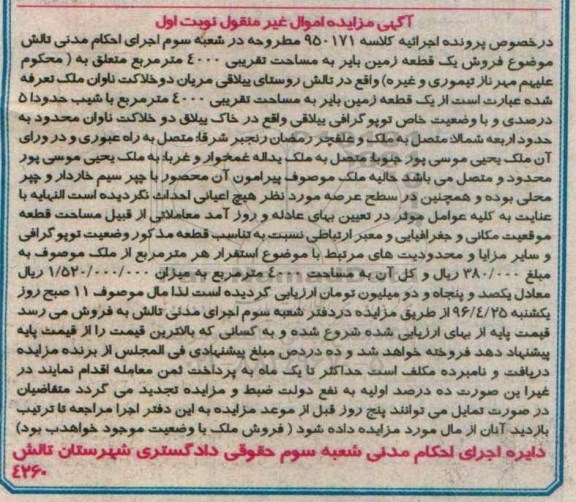 آگهی مزایده اموال غیر منقول نوبت اول
درخصوص پرونده اجرائیه کلاسه ۹۵۰۱۷۱ مطروحه در شعبه سوم اجرای احکام مدنی تالش
موضوع فروش یک قطعه زمین بایر به مساحت تقریبی ۴۰۰۰ مترمربع متعلق به ( محکوم
علیهم مهرناز تیموری و غیره) واقع در تالش روستای ییلاقی مریان دوخلاکت ناوان ملک تعرفه
شده عبارت است از یک قطعه زمین بایر به مساحت تقریبی ۴۰۰۰ مترمربع با شیب حدودا ۵
درصدی و با وضعیت خاص توپوگرافی ییلاقی واقع در خاک ییلاق دو خلاکت ناوان محدود به
حدود اربعه شمالا: متصل به ملک و علفچر رمضان رنجبر شرقا: متصل به راه عبوری و در ورای
آن ملک یحیی موسی پور جنوبا: متصل به ملک یداله غمخوار و غربا: به ملک یحیی موسی پور
محدود و متصل می باشد حالیه ملک موصوف پیرامون آن محصور با چپر سیم خاردار و چپر
محلی بوده و همچنین در سطح عرصه مورد نظر هیچ اعیانی احداث نگردیده است النهایه با
عنایت به کلیه عوامل موثر در تعیین بهای عادله و روز آمد معاملاتی از قبیل مساحت قطعه
موقعیت مکانی و جغرافیایی و معبر ارتباطی نسبت به تناسب قطعه مذکور وضعیت توپوگرافی
و سایر مزایا و محدودیت های مرتبط با موضوع استقرار هر مترمربع از ملک موصوف به
مبلغ ۳۸۰/۰۰۰ ریال و کل آن به مساحت ۴۰۰۰ مترمربع به میزان ۱/۵۲۰/۰۰۰/۰۰۰ ریال
معادل یکصد و پنجاه و دو میلیون تومان ارزیابی گردیده است لذا مال موصوف ۱۱ صبح روز
یکشنبه ۹۶/۴/۲۵ از طریق مزایده در دفتر شعبه سوم اجرای مدنی تالش به فروش می رسد
قیمت پایه از بهای ارزیابی شده شروع شده و به کسانی که بالاترین قیمت را از قیمت پایه
پیشنهاد دهد فروخته خواهد شد و ده درصد مبلغ پیشنهادی فی المجلس از برنده مزایده
دریافت و نامبرده مکلف است حداکثر تا یک ماه به پرداخت ثمن معامله اقدام نمایند در
غیر این صورت ده درصد اولیه به نفع دولت ضبط و مزایده تجدید می گردد متقاضیان
در صورت تمایل می توانند پنج روز قبل از موعد مزایده به این دفتر اجرا مراجعه تا ترتیب
بازدید آنان از مال مورد مزایده داده شود ( فروش ملک با وضعیت موجود خواهد بود)
دایره اجرای احکام مدنی شعبه سوم حقوقی دادگستری شهرستان تالش
۴۲۶۰